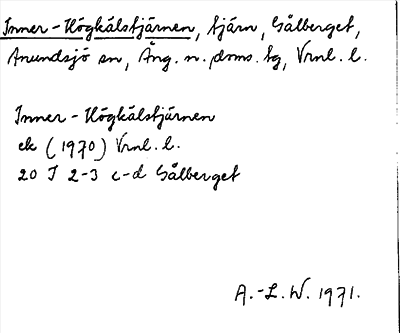 Inner-Högkålstjärnen, tjärn, Gålberget,
Anundsjö sn, Ång. n. doms. tg, Vrnl. l.
Inner-Högkålstjärnen
ek (1970) Vrnl. l.
20 J 2-3 c-d Gålberget
A.-L. W. 1971.